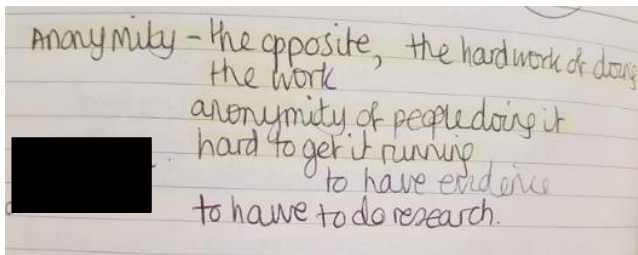 Anonymity - the opposite, the hardwork of doing
the work
anonymity of people doing it
hard to get it running
to have evidence
to have to do research.